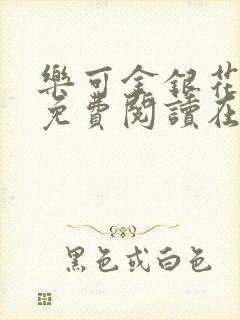 樂可金銀花
免費閱讀在
黑色或白色